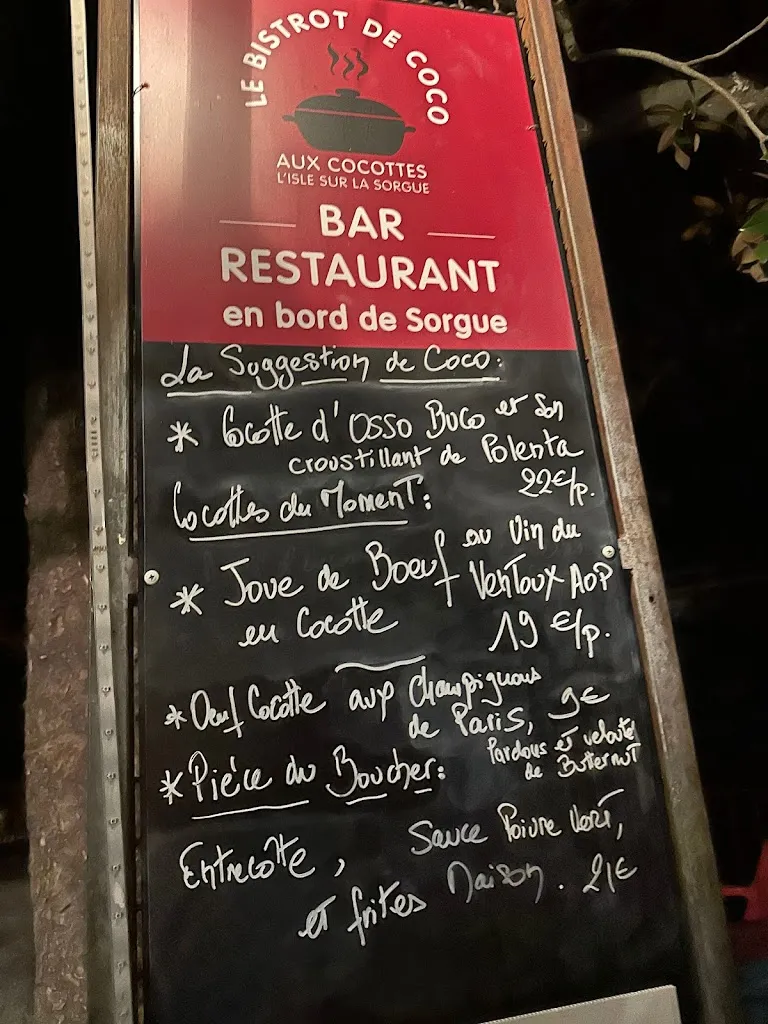 LE BISTROT DE COCO
AUX COCOTTES
L'ISLE SUR LA SORGUE
BAR
RESTAURANT
en bord de Sorgue
La Suggestion de Coco:
* Cocotte d'Osso Buco et son
croustillant de Polenta
22€/p.
Cocottes du Moment:
* Joue de Boeuf au Vin du
en Cocotte Ventoux AOP
19 €/p.
* Oeuf Cocotte aux Champignons
de Paris, 9€
et velouté
de Butternut
* Piéce du Boucher:
Entrecôtte, Sauce Poivre Vert,
et frites Maison. 21€